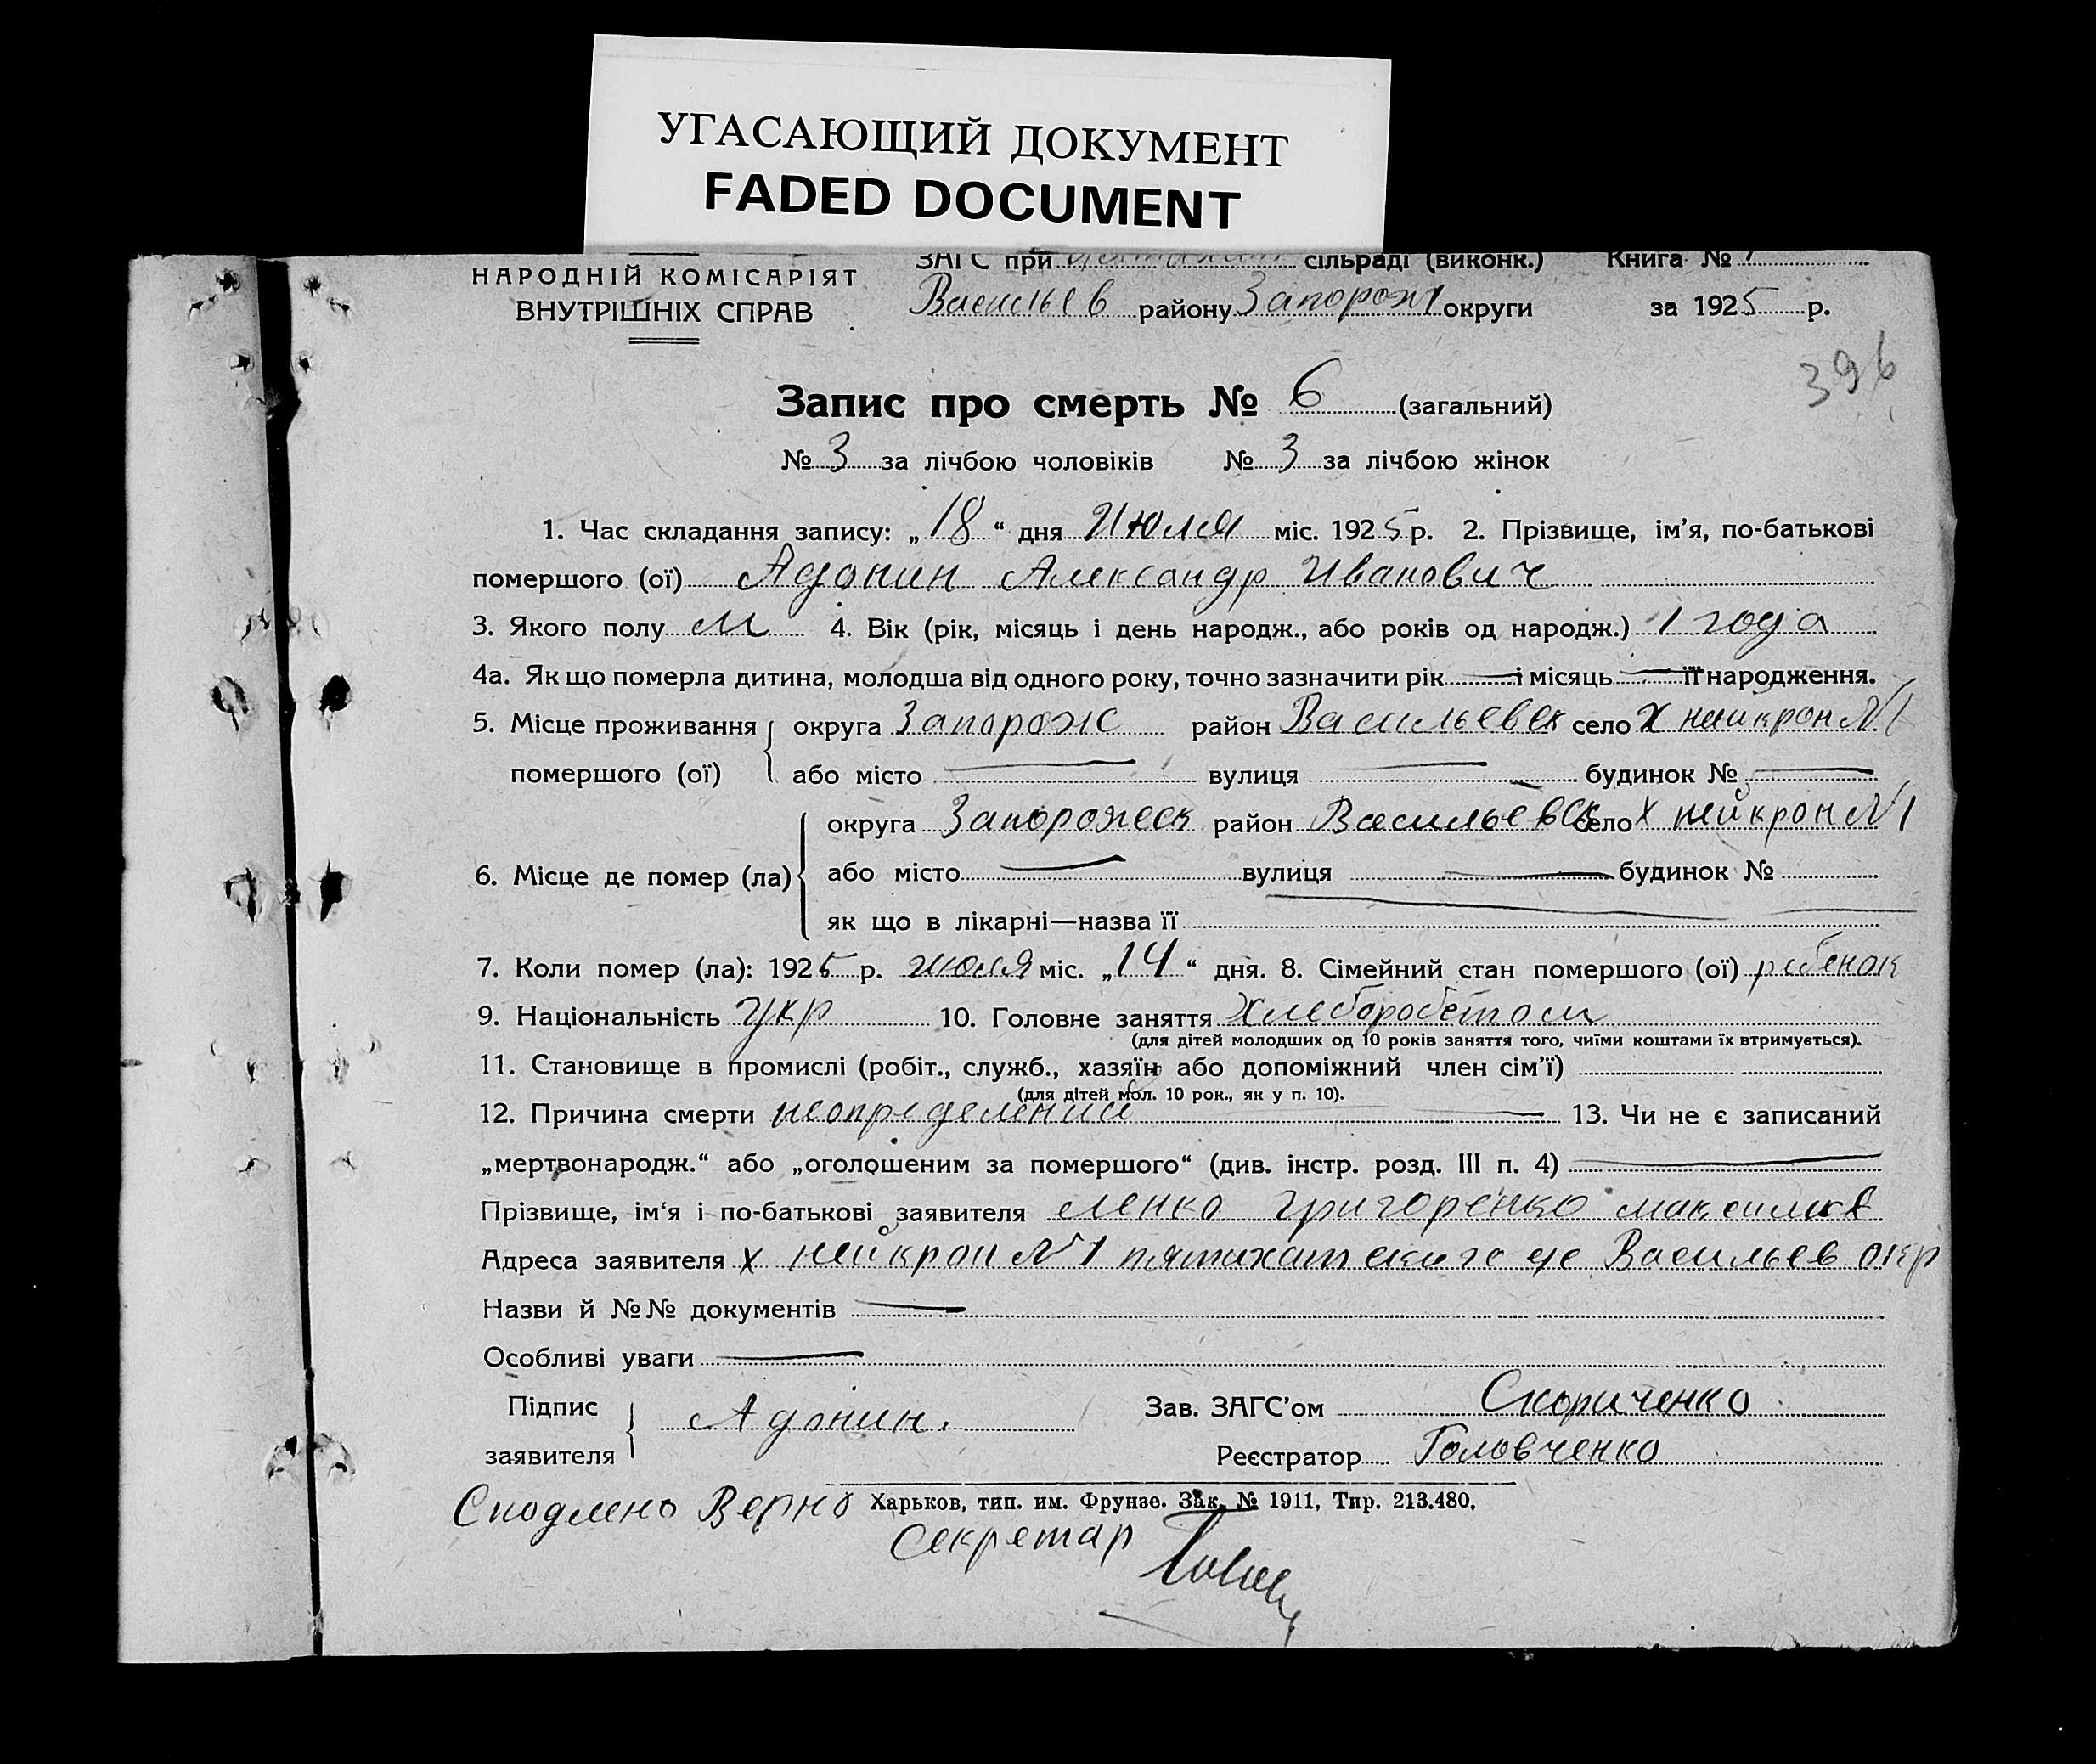 УГАСАЮЩИЙ ДОКУМЕНТ
FADED DOCUMENT
НАРОДНІЙ КОМІСАРІЯТ
ВНУТРІШНІХ СПРАВ
ЗАГС при сільраді (виконк.) Книга №
Васильев району Запорож округи за 1925 р.
396
Запис про смерть № 6 (загальний)
№ 3 за лічбою чоловіків № 3 за лічбою жінок
1. Час складання запису: „18“ дня Июля міс. 1925 р. 2. Прізвище, ім’я, по-батькові
помершого (ої) Адонин Александр Иванович
3. Якого полу М 4. Вік (рік, місяць і день народж., або років од народж.) 1 года
4а. Як що померла дитина, молодша від одного року, точно зазначити рік — і місяць — її народження.
5. Місце проживання округа Запорожс район Васильевск село х нейкрон №1
помершого (ої) або місто — вулиця — будинок № —
округа Запорожск район Васильевск село х нейкрон №1
6. Місце де помер (ла) або місто — вулиця — будинок №
як що в лікарні—назва її
7. Коли помер (ла): 1925 р. июля міс. „14“ дня. 8. Сімейний стан помершого (ої) ребенок
9. Національність укр 10. Головне заняття
(для дітей молодших од 10 років заняття того, чиїми коштами їх втримується).
11. Становище в промислі (робіт., служб., хазяїн або допоміжний член сім’ї)
(для дітей мол. 10 рок., як у п. 10).
12. Причина смерти 13. Чи не є записаний
„мертвонародж.“ або „оголошеним за помершого“ (див. інстр. розд. III п. 4) —
Прізвище, ім‘я і по-батькові заявителя Григоренко
Адреса заявителя х нейкрон №1 Васильев окр
Назви й №№ документів —
Особливі уваги —
Підпис Адонин. Зав. ЗАГС’ом Скориченко
заявителя Реєстратор Головченко
Харьков, тип. им. Фрунзе. Зак. № 1911, Тир. 213.480.
Верно
Секретар